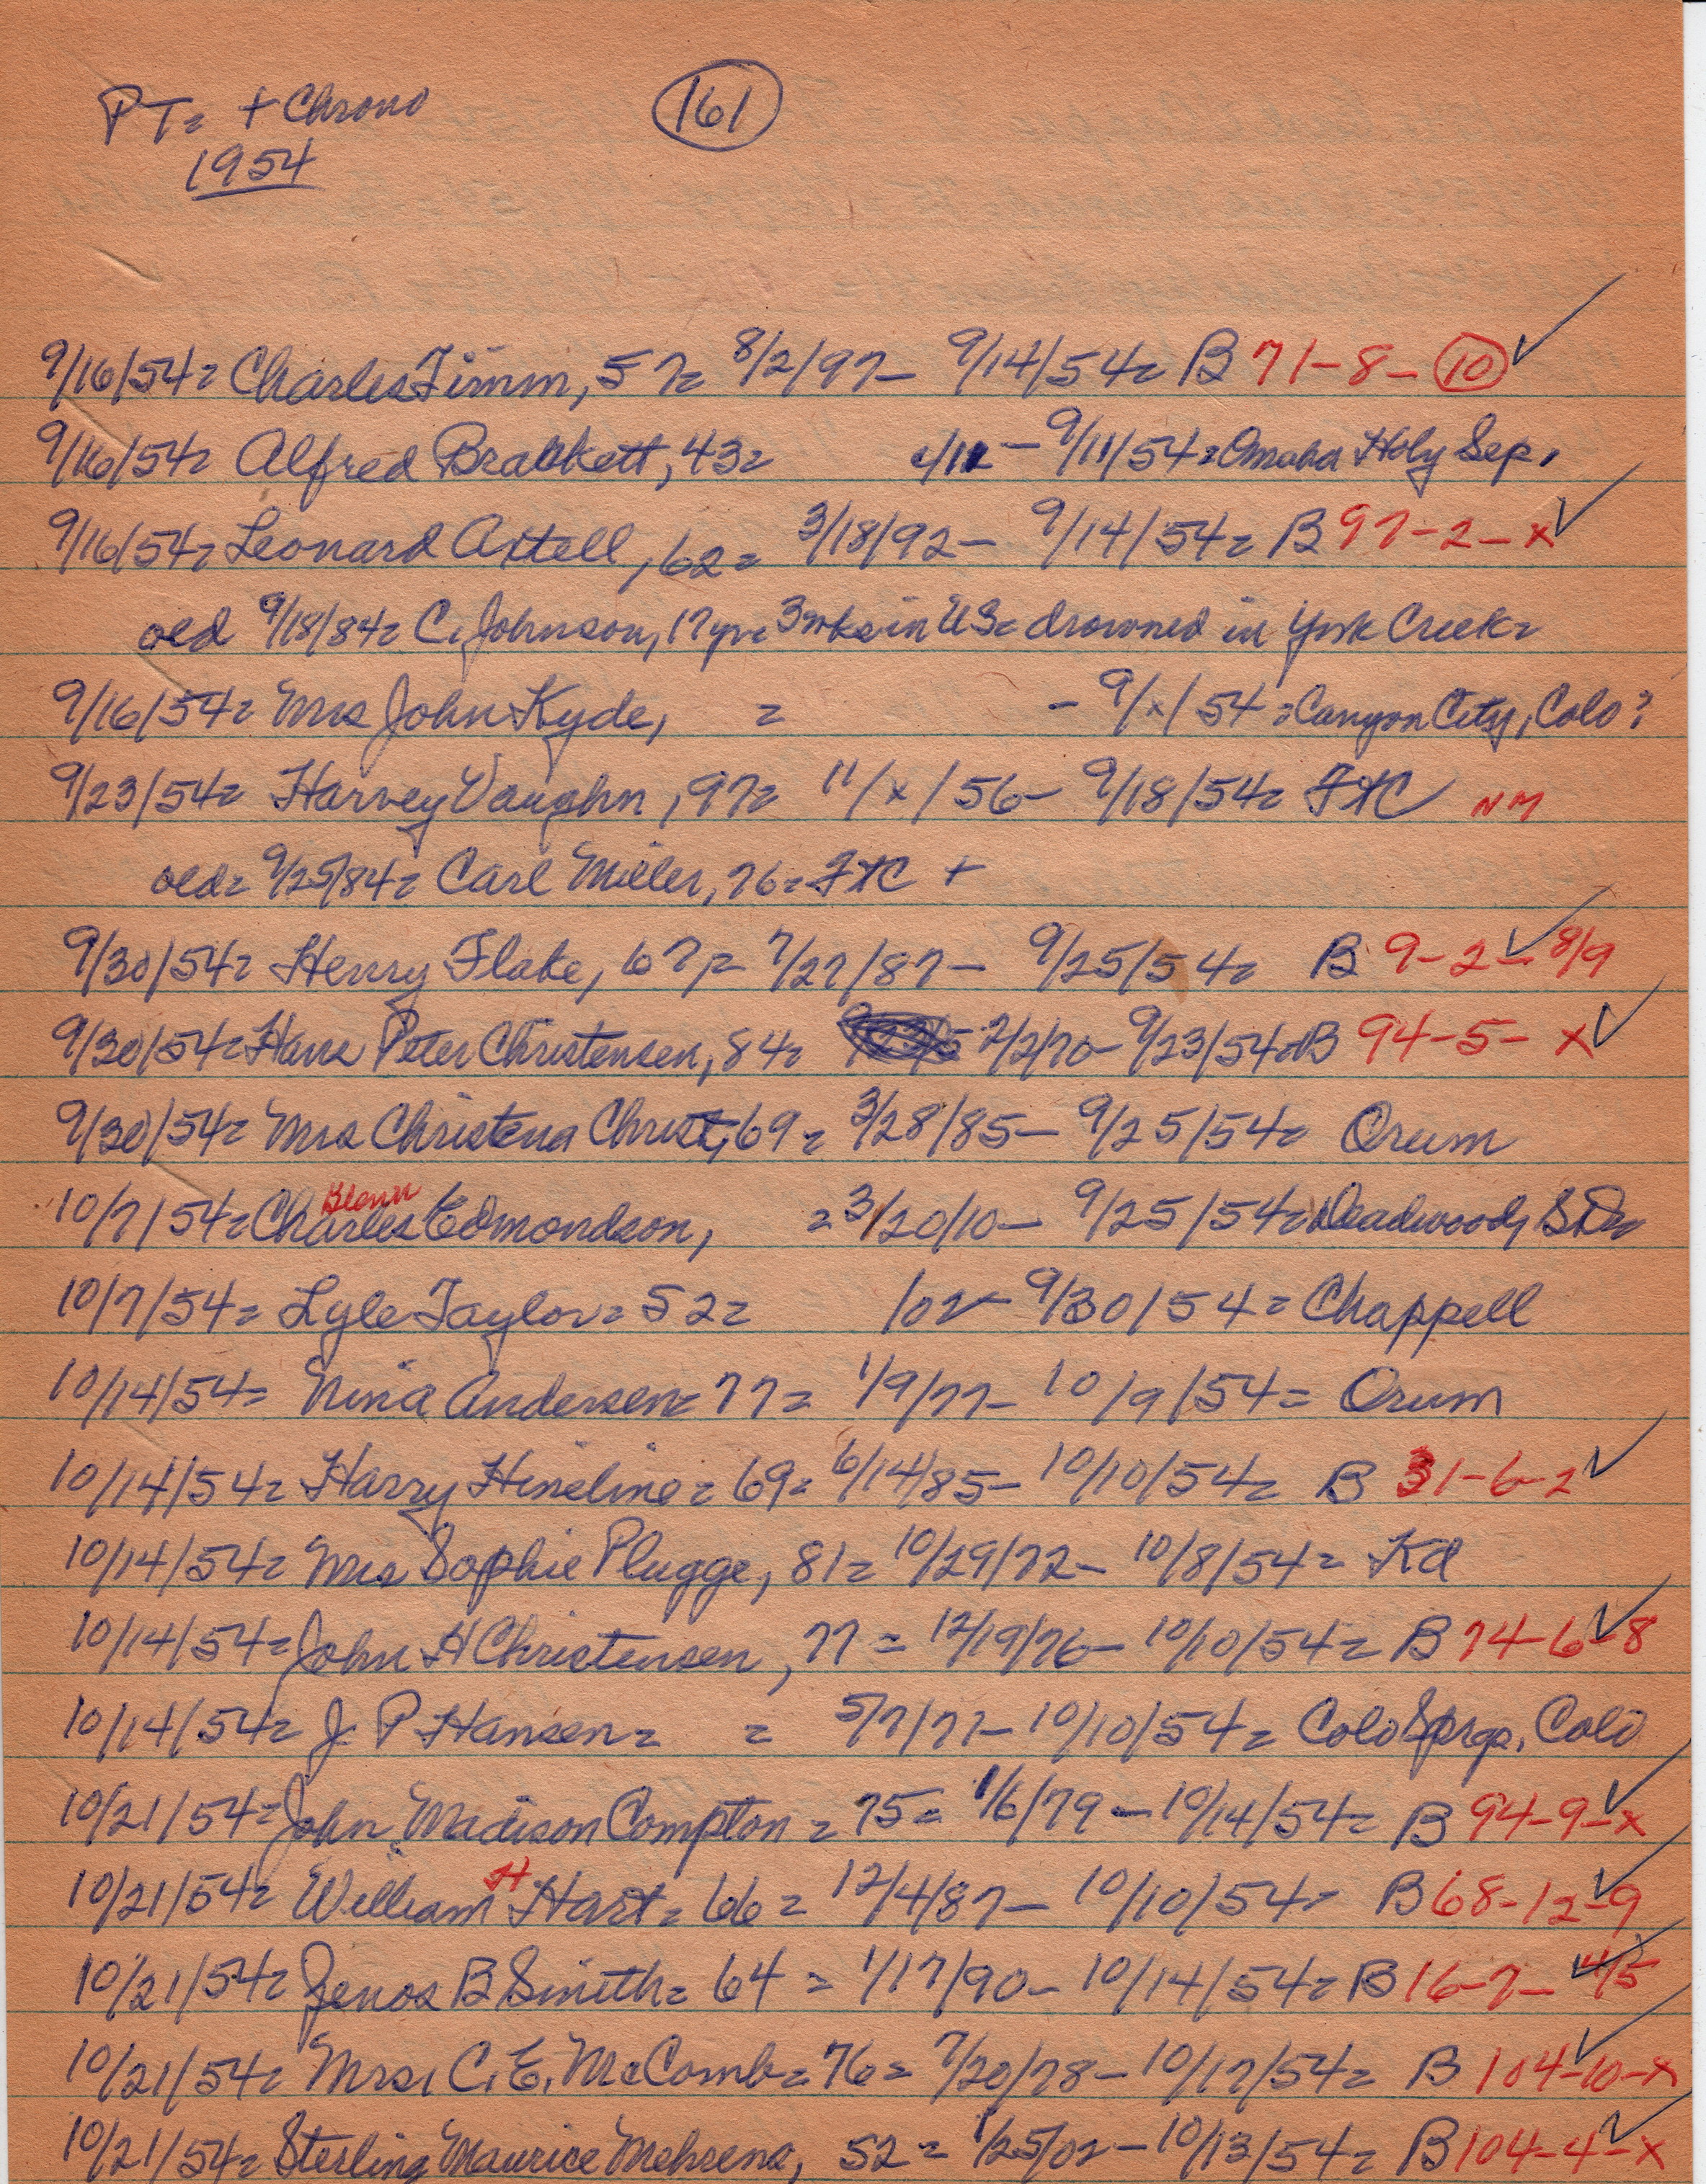 PT= + Chrono
161
1954
9/16/54= Charles Timm, 57= 8/2/97- 9/14/54= B 71-8-10 ✓
9/16/54= Alfred Brackett, 43= /11 - 9/11/54= Omaha Holy Sep.
9/16/54= Leonard Axtell, 62= 3/18/92- 9/14/54= B 97-2-x ✓
old 9/18/84= C. Johnson, 17 yr= 3 wks in US= drowned in York Creek=
9/16/54= Mrs John Kyde, = - 9/x/54= Canyon City, Colo?
9/23/54= Harvey Vaughn, 97= 11/x/56- 9/18/54= FtC NM
old= 9/25/84= Carl Miller, 76= FtC +
9/30/54= Henry Flake, 67= 7/27/87- 9/25/54= B 9-2- 8/9 ✓
9/30/54= Hans Peter Christensen, 84= 2/2/70- 9/23/54= B 94-5-x ✓
9/30/54= Mrs Christena Christ, 69= 3/28/85- 9/25/54= Orum
10/7/54= Charles Edmondson, = 3/20/10- 9/25/54= Deadwood, SD=
10/7/54= Lyle Taylor= 52= /02- 9/30/54= Chappell
10/14/54= Nina Andersen= 77= 1/9/77- 10/9/54= Orum
10/14/54= Harry Hineline= 69= 6/14/85- 10/10/54= B 31-6-2 ✓
10/14/54= Mrs Sophie Plugge, 81= 10/29/72- 10/8/54= Kd
10/14/54= John H Christensen, 77= 12/19/76- 10/10/54= B 74-6-8 ✓
10/14/54= J P Hansen= = 5/7/77- 10/10/54= Colo Sprgs, Colo
10/21/54= John Madison Compton= 75= 1/6/79- 10/14/54= B 94-9-x ✓
10/21/54= William H Hart= 66= 12/4/87- 10/10/54= B 68-12-9 ✓
10/21/54= Zenos B Smith= 64= 1/17/90- 10/14/54= B 16-7- 4/5 ✓
10/21/54= Mrs. C. E. McComb= 76= 7/20/78- 10/17/54= B 104-10-x ✓
10/21/54= Sterling Maurice Mehrens, 52= 1/25/02- 10/13/54= B 104-4-x ✓